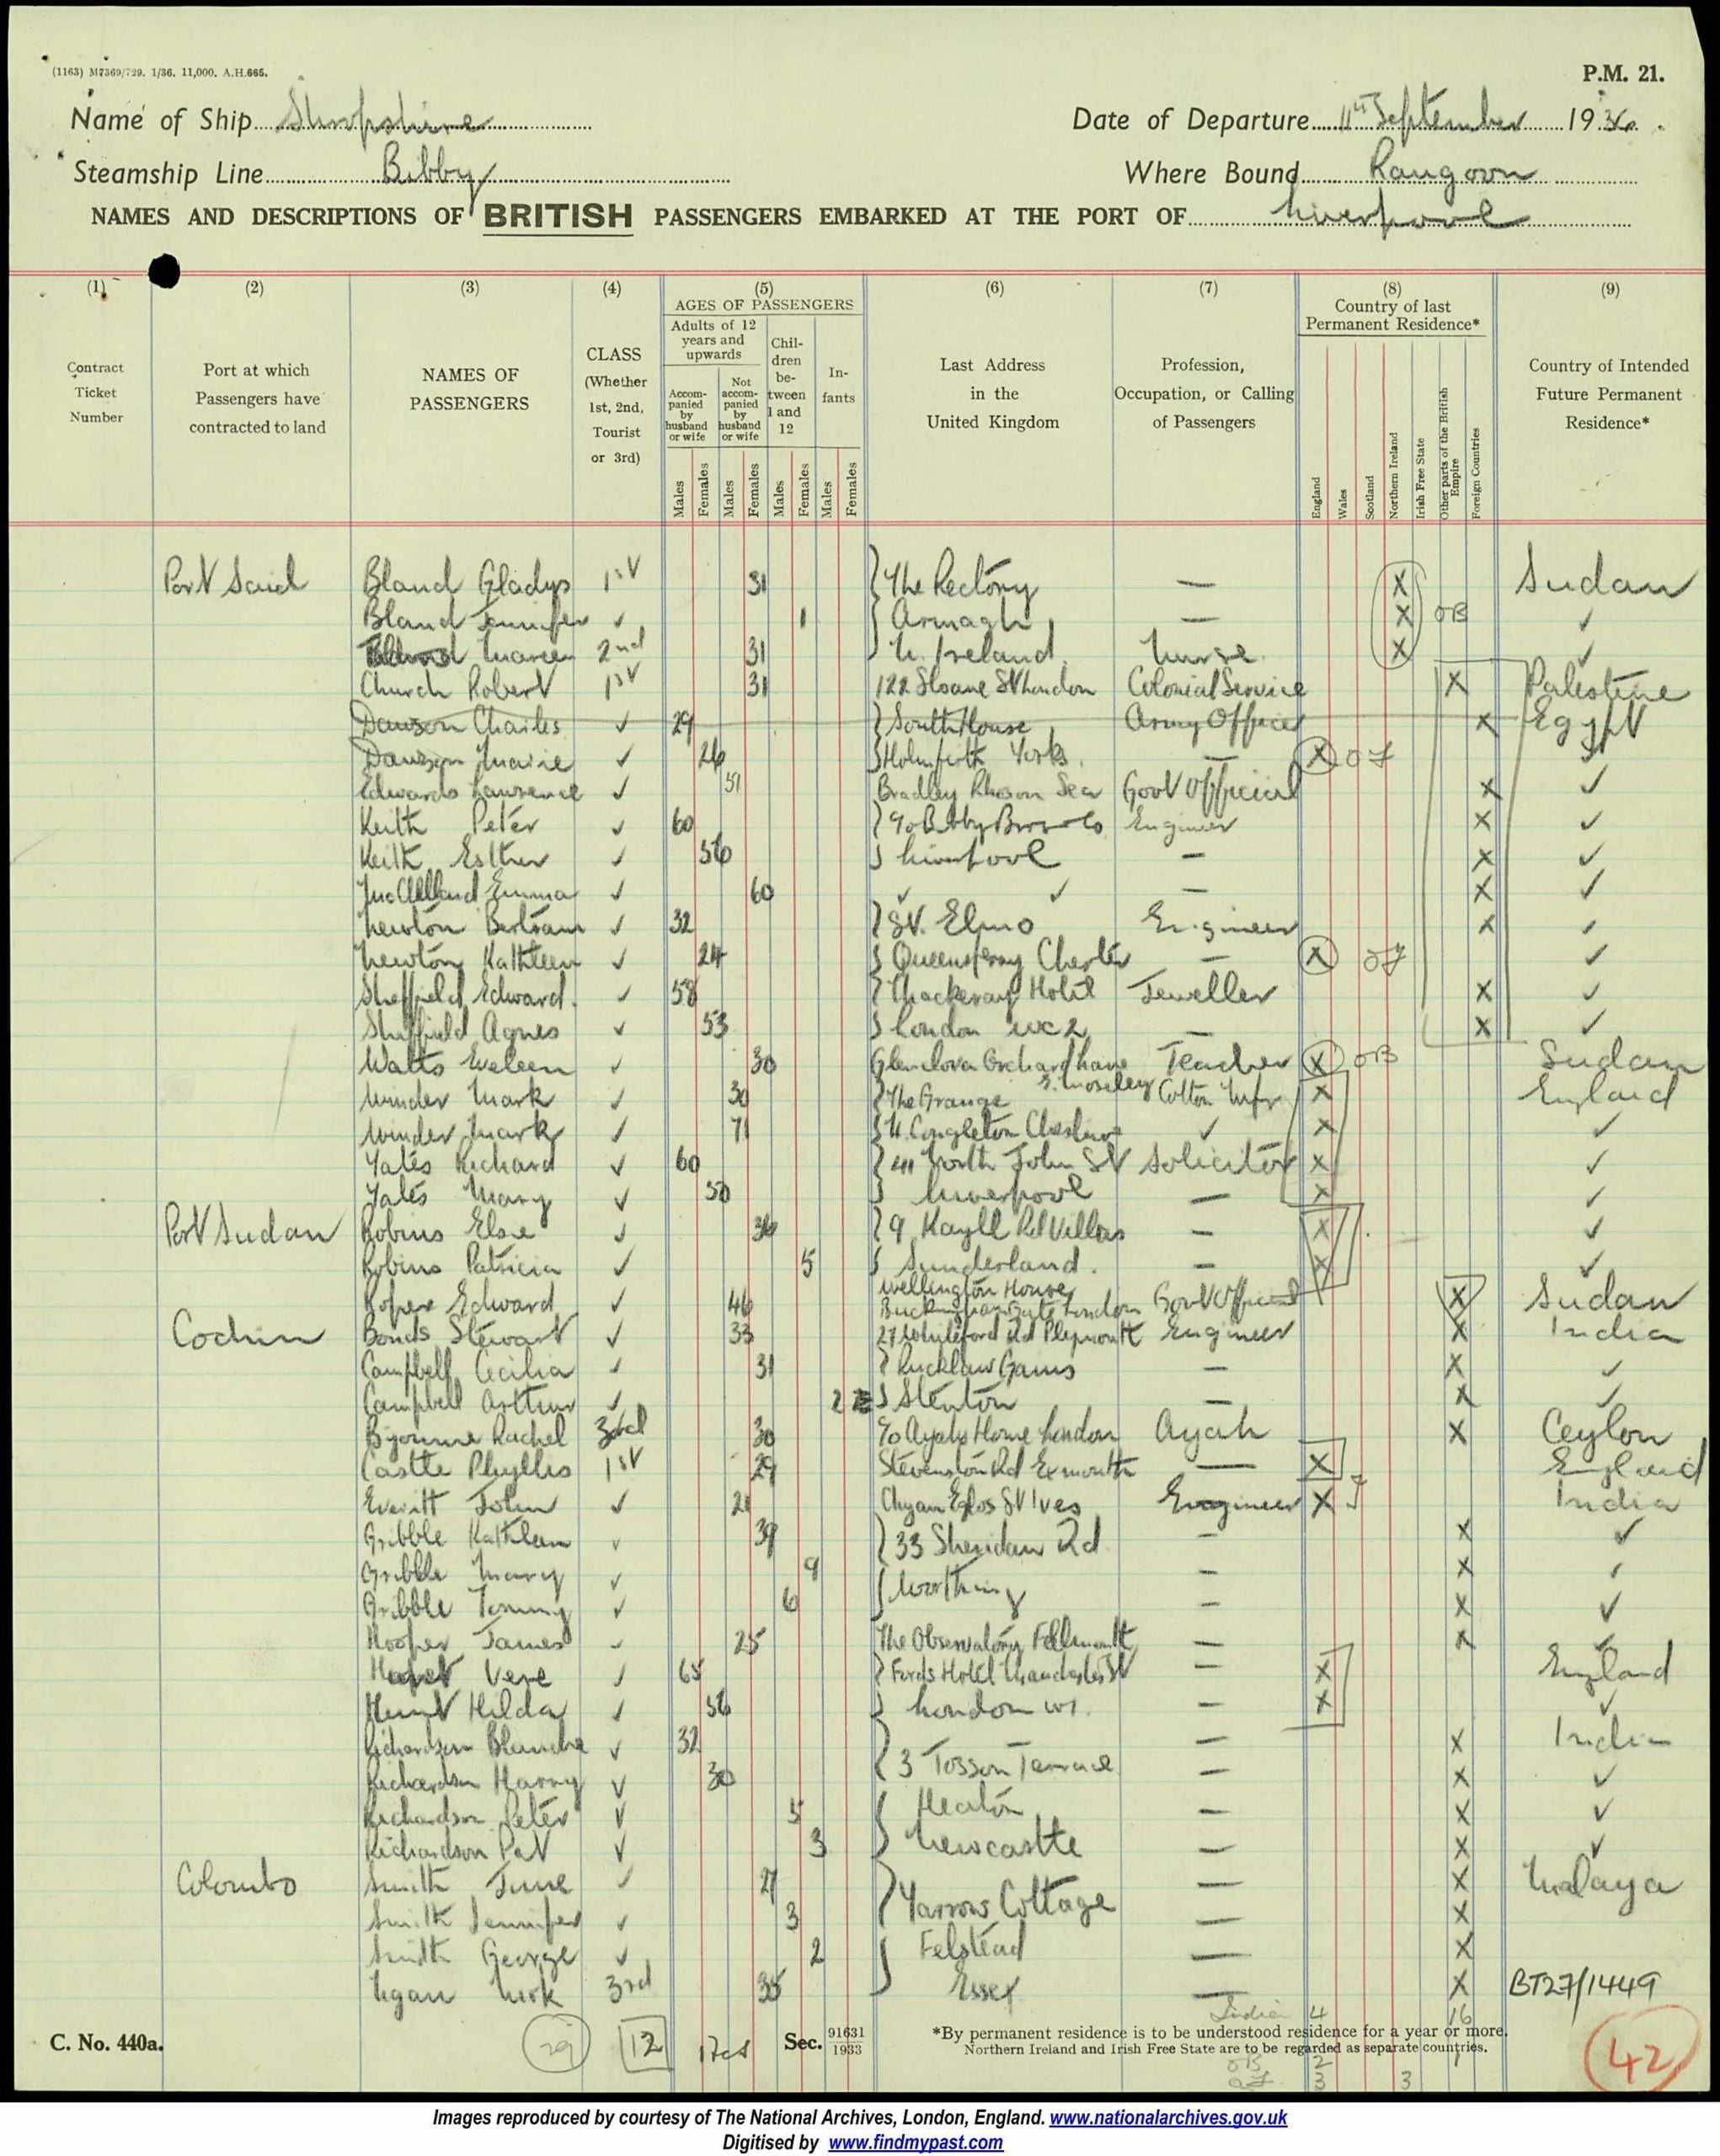 (1163) M7369/729. 1/36. 11,000. A.H.665.
P.M. 21.
Name of Ship Shropshire Date of Departure 11th September 1936
Steamship Line Bibby Where Bound Rangoon
NAMES AND DESCRIPTIONS OF BRITISH PASSENGERS EMBARKED AT THE PORT OF Liverpool
(1) (2) (3) (4) (5) (6) (7) (8) (9)
Contract Ticket Number
Port at which Passengers have contracted to land
NAMES OF PASSENGERS
CLASS (Whether 1st, 2nd, Tourist or 3rd)
AGES OF PASSENGERS
Adults of 12 years and upwards
Accompanied by husband or wife
Not accompanied by husband or wife
Children between 1 and 12
Infants
Males Females Males Females Males Females Males Females
Last Address in the United Kingdom
Profession, Occupation, or Calling of Passengers
Country of last Permanent Residence*
England Wales Scotland Northern Ireland Irish Free State Other parts of the British Empire Foreign Countries
Country of Intended Future Permanent Residence*
Port Said Bland Gladys 1st 31 The Rectory — X Sudan
Bland Jennifer ✓ 1 Armagh — X OB ✓
2nd 31 N. Ireland Nurse X ✓
Church Robert 1st 31 122 Sloane St London Colonial Service X Palestine
Dawson Charles ✓ 29 South House Army Officer X Egypt
Dawson ✓ 26 Holmfirth Yorks. — X OF
Edwards Lawrence ✓ 51 Bradley Sea Govt Official X ✓
Keith Peter ✓ 60 c/o Bibby Bros & Co Engineer X ✓
Keith Esther ✓ 56 Liverpool — X ✓
McClelland Emma ✓ 60 ✓ ✓ — X ✓
Newton Bertram ✓ 32 St. Elmo Engineer X ✓
Newton Kathleen ✓ 24 Queensferry Chester — X OF ✓
Sheffield Edward. ✓ 58 Thackeray Hotel Jeweller X ✓
Sheffield Agnes ✓ 53 London WC2 — X ✓
Watts Eveleen ✓ 30 Glenclova Orchard Lane Teacher X OB Sudan
Winder Mark ✓ 30 The Grange Cotton Mfr X England
Winder Mark ✓ 71 N. Congleton Cheshire ✓ X ✓
Yates Richard ✓ 60 41 North John St Solicitor X ✓
Yates Mary ✓ 50 Liverpool — X ✓
Port Sudan Robins Elsie ✓ 36 9 Kayll Rd Villas — X ✓
Robins Patricia ✓ 5 Sunderland. — X ✓
Roper Edward ✓ 46 Wellington House Buckingham Gate London Govt Official X Sudan
Cochin Bonds Stewart ✓ 33 27 Whiteford Rd Plymouth Engineer X India
Campbell Cecilia ✓ 31 — X ✓
Campbell Arthur ✓ 2 Stenton — X ✓
Rachel 3rd 30 c/o Ayahs Home London Ayah X Ceylon
Castle Phyllis 1st 29 Rd Exmouth — X England
Everitt John ✓ 21 St Ives Engineer X India
Gribble Kathleen ✓ 39 33 Sheridan Rd — X ✓
Gribble Mary ✓ 9 Worthing — X ✓
Gribble Tommy ✓ 6 — X ✓
Hooper James ✓ 25 The Observatory Falmouth — X ✓
Vere ✓ 65 Fords Hotel Manchester St — X England
Hunt Hilda ✓ 56 London W1. — X ✓
Richardson Blanche ✓ 32 3 Tosson Terrace — X India
Richardson Harry ✓ 30 — X ✓
Richardson Peter ✓ 5 Heaton — X ✓
Richardson Pat ✓ 3 Newcastle — X ✓
Colombo Smith June ✓ 27 Yarrow Cottage — X Malaya
Smith Jennifer ✓ 3 — X
Smith George ✓ 2 Felstead — X
3rd 35 Essex — X BT27/1449
India 4 16
C. No. 440a. 29 12 Sec. 91631/1933
*By permanent residence is to be understood residence for a year or more.
Northern Ireland and Irish Free State are to be regarded as separate countries.
OB 2
OF 3 3
42
Images reproduced by courtesy of The National Archives, London, England. www.nationalarchives.gov.uk
Digitised by www.findmypast.com